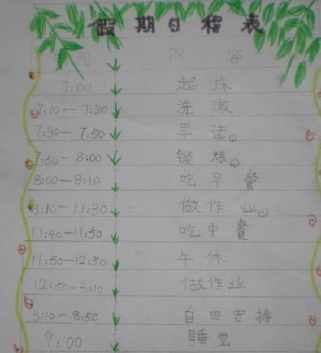 假期日程表
内 容
7:00 起床
7:10—7:30 洗漱
7:30—7:50 早读。
7:50—8:00 锻炼。
8:00—8:10 吃早餐
8:10—11:30 做作业。
11:40—11:50 吃中餐
11:50—12:50 午休
12:50—3:10 做作业
3:10—8:50 自由安排
9:00 睡觉